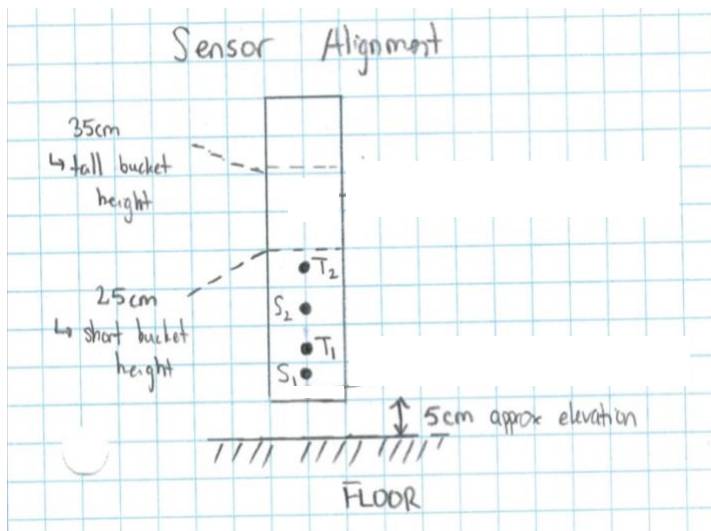 Sensor Alignment
35cm
↳ tall bucket
height
T2
25cm
S2
↳ short bucket
T1
height
S1
5cm approx elevation
FLOOR